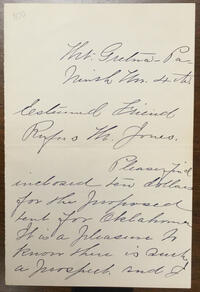 Mt. Gretna Pa-
Ninth Mo. 4th.
Esteemed Friend
Rufus M. Jones.
Please find
inclosed ten dollars
for the proposed
tent for Oklahoma
It is a pleasure to
know there is such
a prospect and I